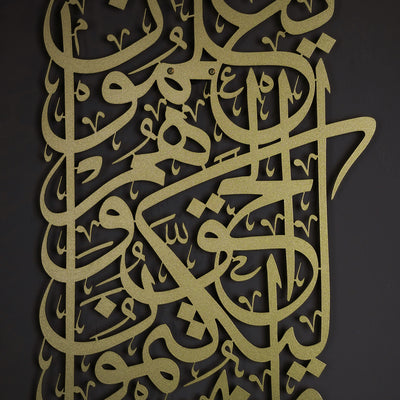 ليكتمون
الحق
وهم
يعلمون